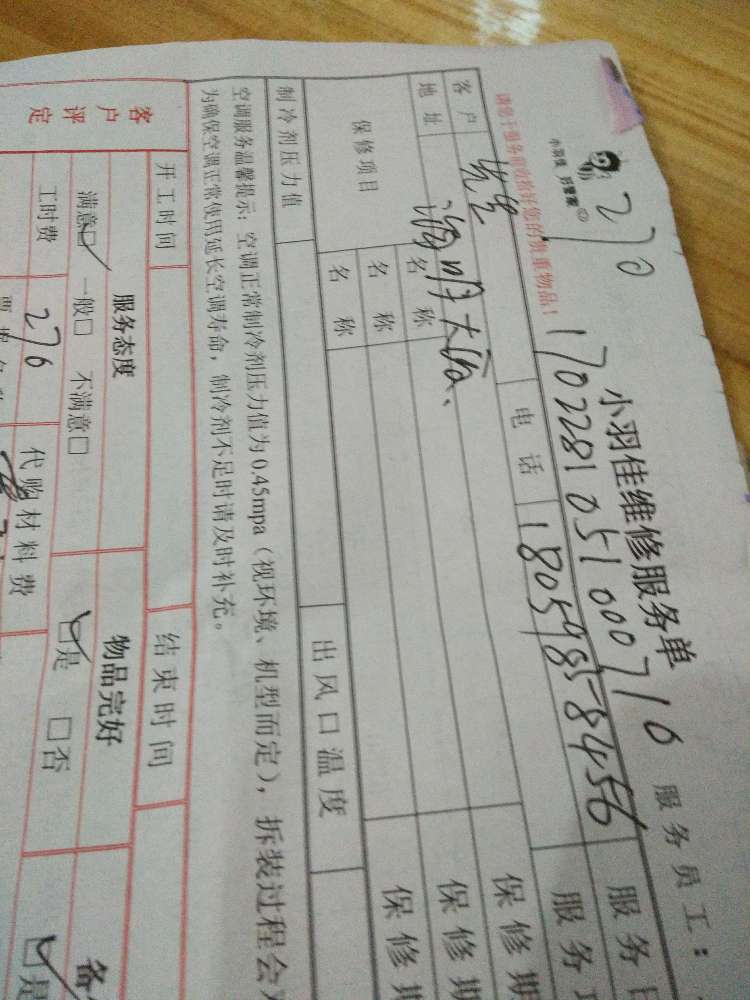 270
小羽佳 好管家
小羽佳维修服务单
服务员工：
170228105100076
请您于服务前收拾好您的贵重物品！
客户
电话
18059858456
服务
地址
海明大厦、
服务
保修项目
名称
保修期
名称
保修期
名称
保修期
制冷剂压力值
出风口温度
空调服务温馨提示: 空调正常制冷剂压力值为0.45mpa（视环境、机型而定），拆装过程会
为确保空调正常使用延长空调寿命，制冷剂不足时请及时补充。
开工时间
结束时间
客户评定
服务态度
物品完好
满意☑ 一般□ 不满意□
☑是 □否
☑是
工时费
276
代购材料费